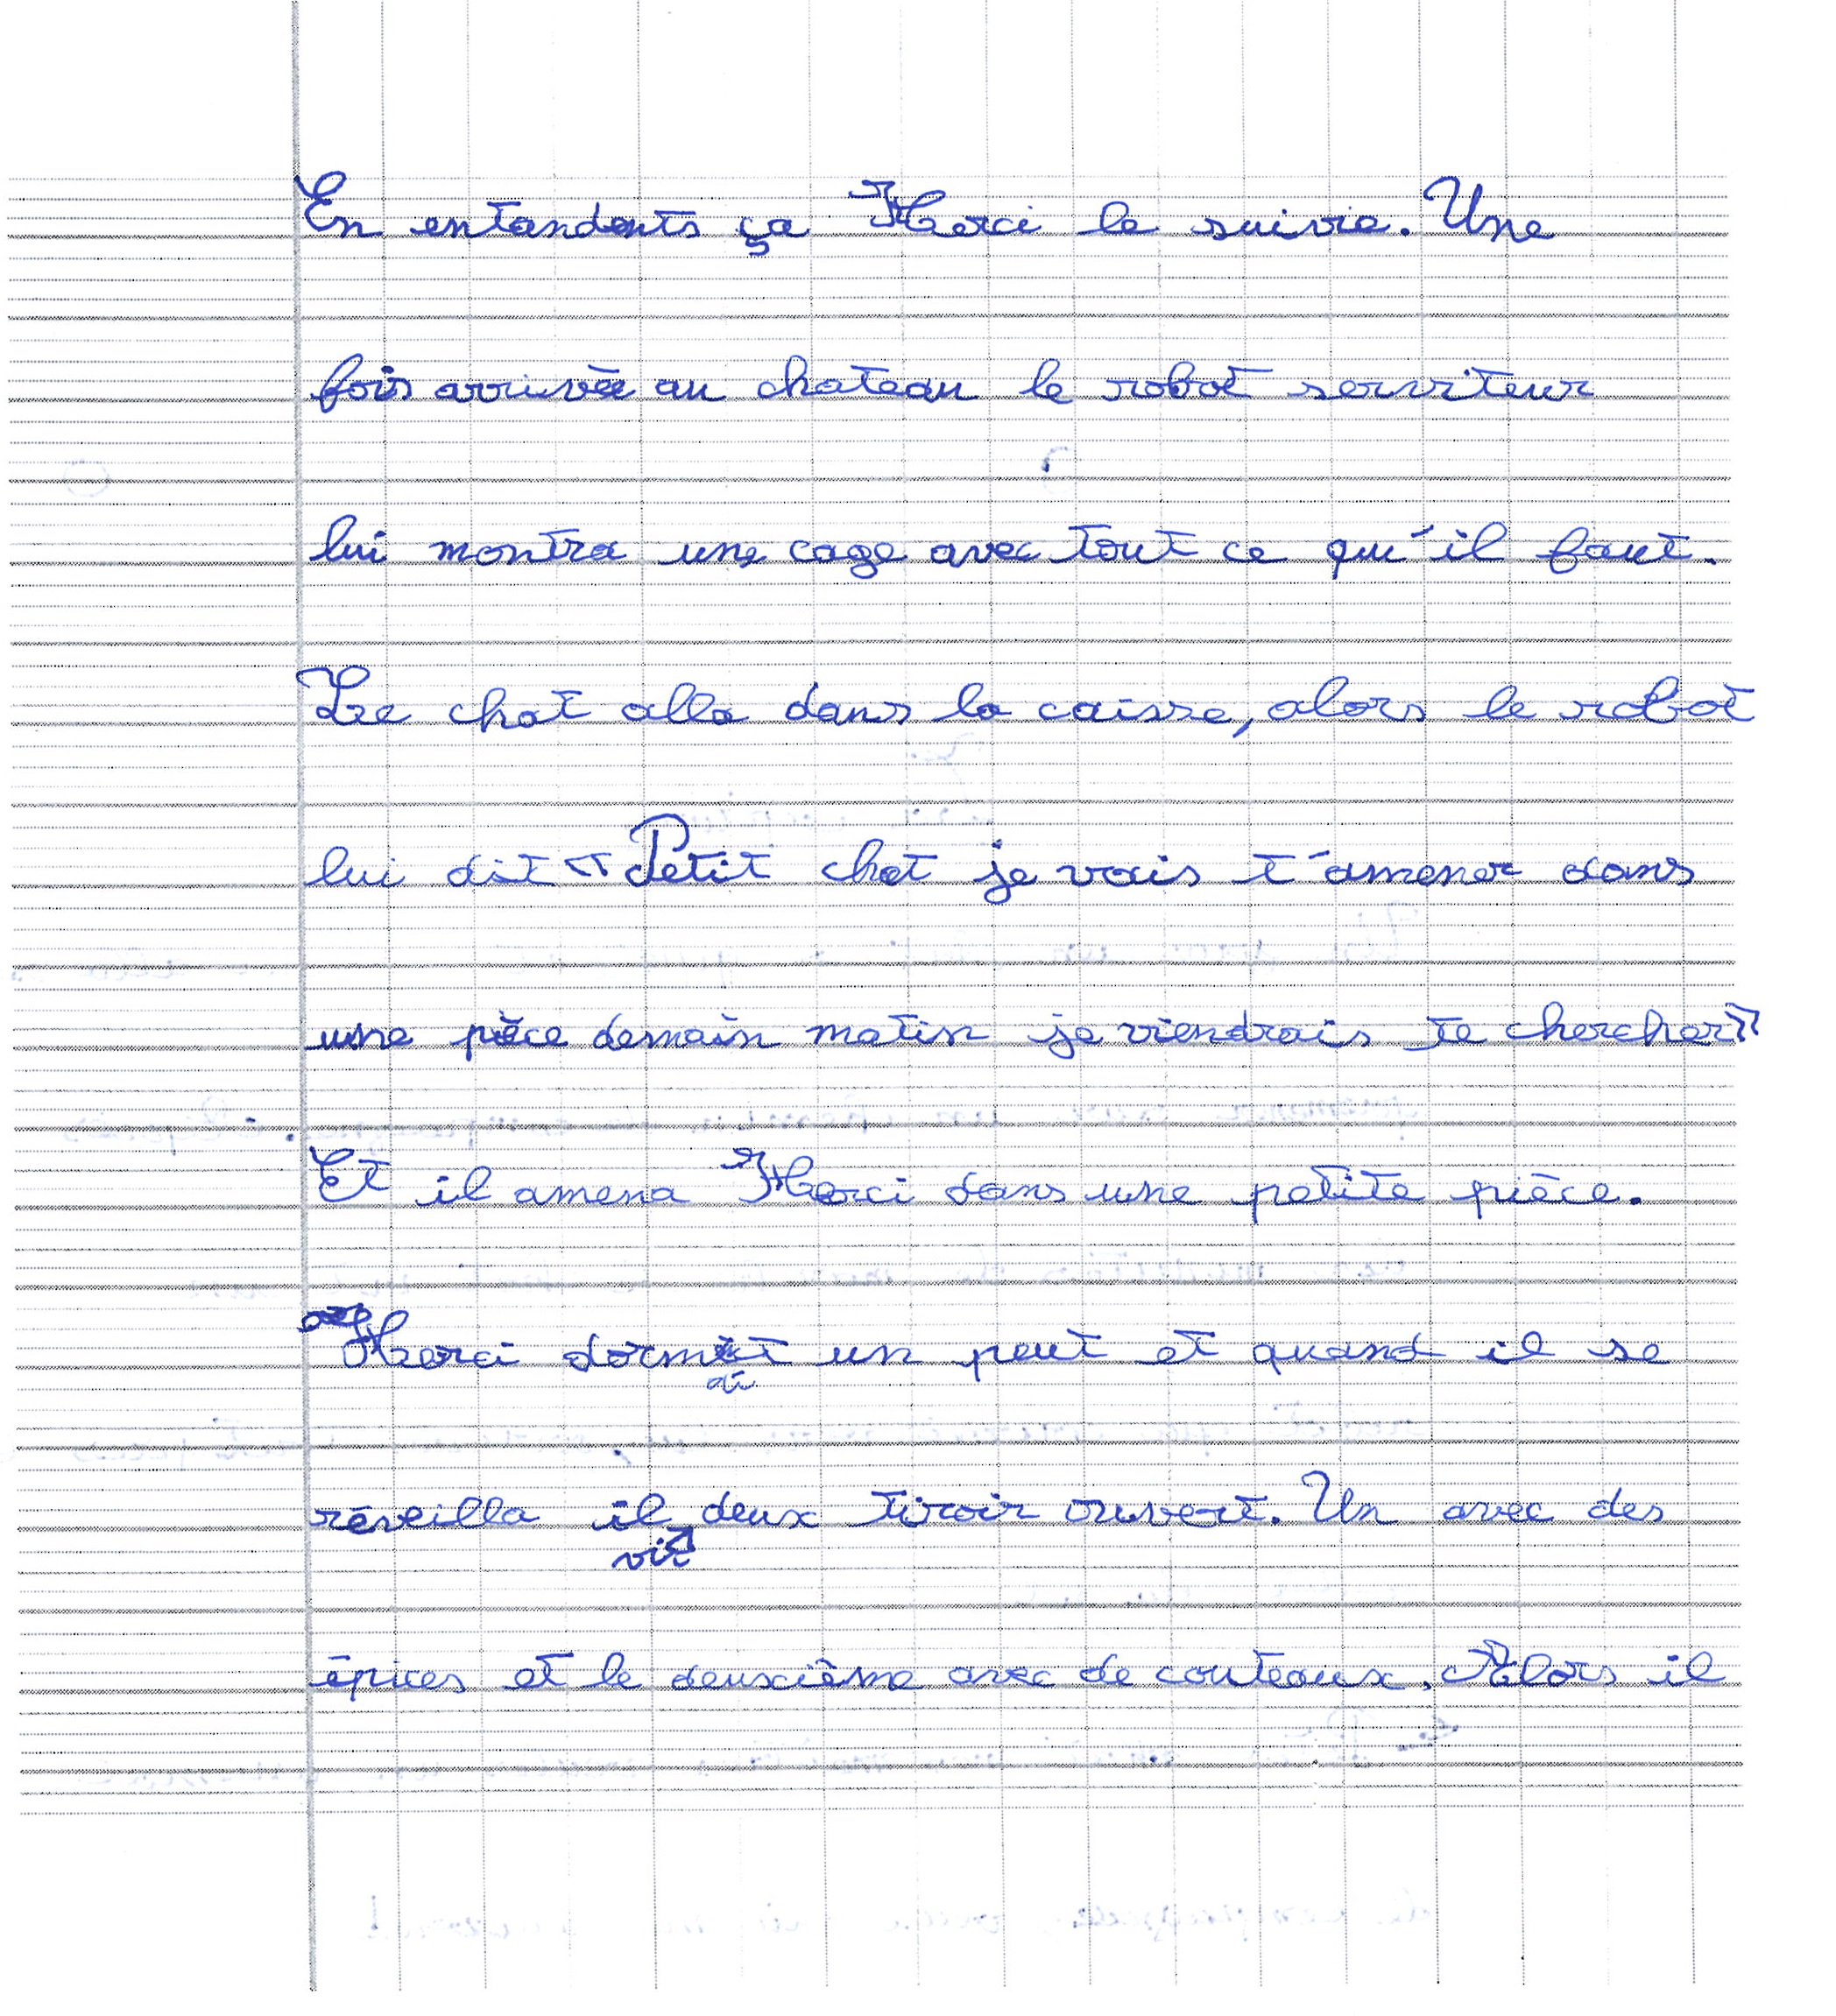 En entandents ça Herci le suivie. Une
fois arrivée au chateau le robot serviteur
lui montra une cage avec tout ce qu'il faut.
Le chat alla dans la caisse, alors le robot
lui dit « Petit chat je vais t'amener dans
une pièce demain matin je viendrais te chercher »
Et il amena Herci dans une petite pièce.
Herci dormait un peut et quand il se
réveilla il vit deux tiroir ouvert. Un avec des
épices et le deuxième avec de couteaux. Alors il